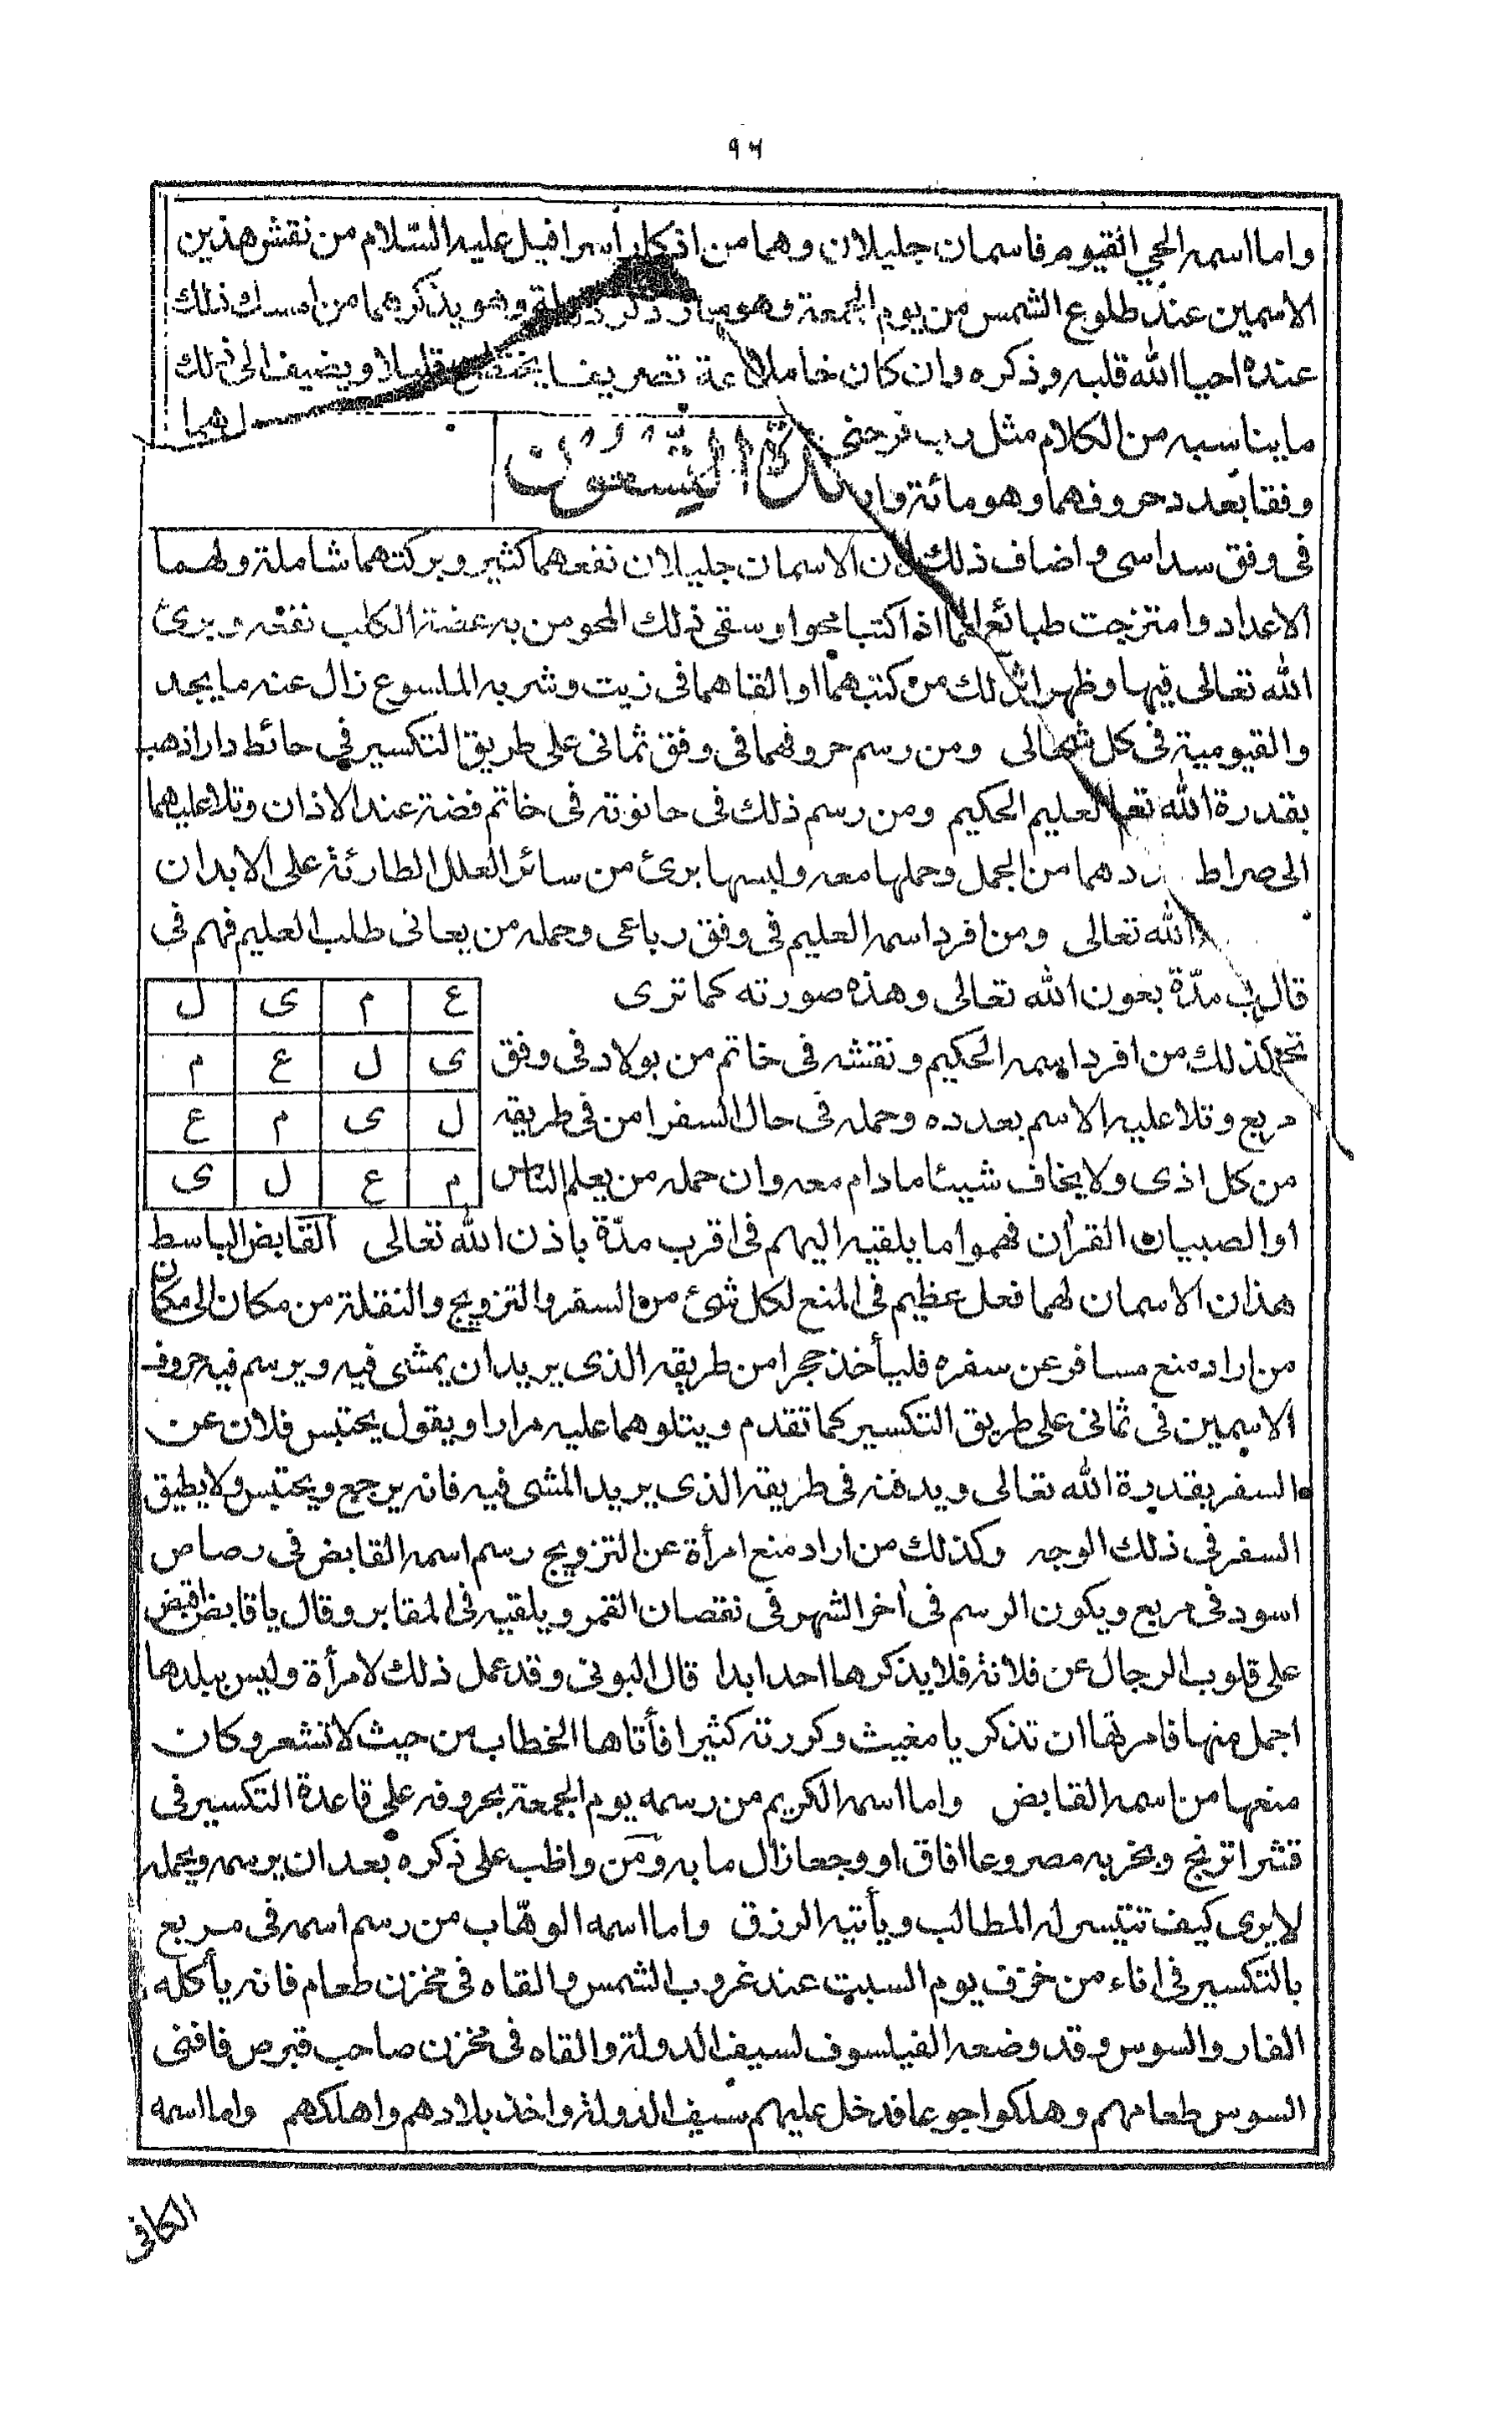 ٩٣
واما اسمه الحي القيوم فاسمان جليلان وهما من اذكار اسرافيل عليه السّلام من نقش هذين
الاسمين عند طلوع الشمس من يوم الجمعة وهو ويذكرهما من امسك ذلك
عنده احيا الله قلبه وذكره وان كان خاملا تصريفا قليلا ويضيف الى ذلك
ما يناسبه من الكلام مثل رب لهما
وفقا بعدد حروفهما وهو مائة
فى وفق سداسى واضاف ذلك الاسمان جليلان نفعهما كثير وبركتهما شاملة ولهما
الاعداد وامتزجت طبائع اذا كتبا محوا وسقى ذلك المحو من به عضة الكلب نفعه وبرئ
الله تعالى فيها وظهر من كتبهما او القاهما فى زيت وشربه الملسوع زال عنه ما يجد
والقيومية فى كل ومن رسم حروفهما فى وفق ثمانى على طريق التكسير فى حائط دار اذهب
بقدرة الله العليم الحكيم ومن رسم ذلك فى حانوته فى خاتم فضة عند الاذان وتلا عليهما
الى صراط من الجمل وحملها معه ولبسها برئ من سائر العلل الطارئة على الابدان
الله تعالى ومن افرد اسمه العليم فى وفق رباعى وحمله من يعانى طلب العليم فهم فى
مدّة بعون الله تعالى وهذه صورته كما ترى
ع م ى ل
ى ل ع م
ل ى م ع
م ع ل ى
كذلك من افرد اسمه الحكيم ونقشه فى خاتم من بولاد فى وفق
مربع وتلا عليه الاسم بعدده وحمله فى حال السفر امن فى طريقه
من كل اذى ولا يخاف شيئا ما دام معه وان حمله من يعلم النّاس
او الصبيان القرأن فهموا ما يلقيه اليهم فى اقرب مدّة باذن الله تعالى القابض الباسط
هذان الاسمان لهما فعل عظيم فى المنع لكل شئ من السفر والتزويج والنقلة من مكان الى مكان
من اراد منع مسافر عن سفره فليأخذ حجرا من طريقه الذى يريد ان يمشى فيه ويرسم فيه حروف
الاسمين فى ثمانى على طريق التكسير كما تقدم ويتلوهما عليه مرارا ويقول يحتبس فلان عن
السفر بقدرة الله تعالى ويدفنه فى طريقه الذى يريد المشى فيه فانه يرجع ويحتبس ولا يطيق
السفر فى ذلك الوجه وكذلك من اراد منع امرأة عن التزويج رسم اسمه القابض فى رصاص
اسود فى مربع ويكون الرسم فى أخر الشهر فى نقصان القمر ويلقيه فى المقابر وقال يا قابض اقبض
على قلوب الرجال عن فلانة فلا يذكرها احد ابدا قال البونى وقد عمل ذلك لامرأة وليس ببلدها
اجمل منها فامرتها ان تذكر يا مغيث وكررته كثيرا فأتاها الخطاب من حيث لا تشعر وكان
منعها من اسمه القابض واما اسمه الكريم من رسمه يوم الجمعة بحروفه على قاعدة التكسير فى
قشر اترنج وبخر به مصروعا افاق او وجعا زال ما به ومن واظب على ذكره بعد ان يرسمه ويحمله
لا يرى كيف تتيسر له المطالب ويأتيه الرزق واما اسمه الوهّاب من رسم اسمه فى مربع
بالتكسير فى اناء من خزف يوم السبت عند غروب الشمس والقاه فى مخزن طعام فانه يأكله
الفار والسوس وقد وضعه الفيلسوف لسيف الدولة والقاه فى مخزن صاحب قبرص فافنى
السوس طعامهم وهلكوا جوعا فدخل عليهم سيف الدولة واخذ بلادهم واهلكهم واما اسمه
الكافى